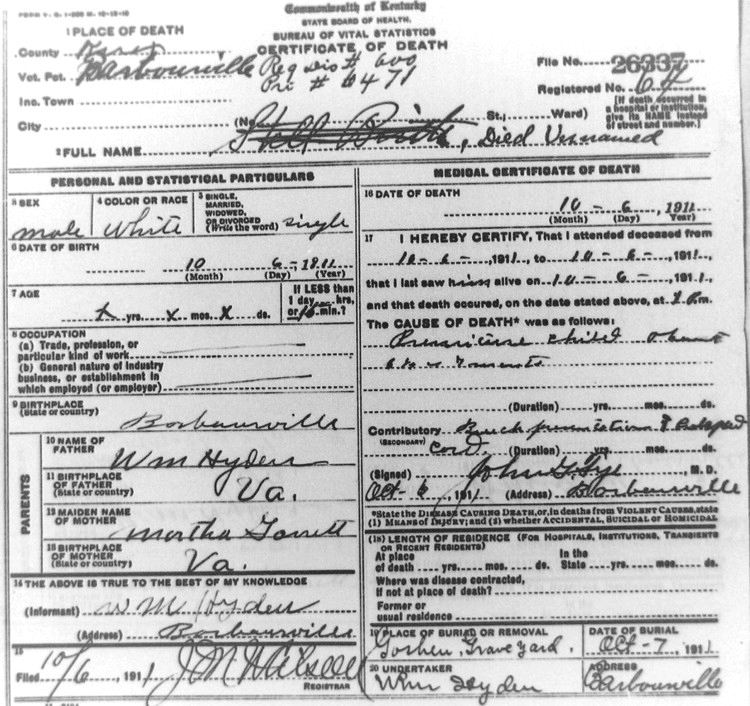 FORM V. S. 1-200 M. 10-12-10
Commonwealth of Kentucky
STATE BOARD OF HEALTH.
BUREAU OF VITAL STATISTICS
CERTIFICATE OF DEATH
1 PLACE OF DEATH
County Knox
Vot. Pct. Barbourville Reg Dis # 600
Pri # 471
File No. 26337
Registered No. 64
Inc. Town
City (No. St.; Ward)
[If death occurred in a hospital or institution, give its NAME instead of street and number.]
2 FULL NAME Still Birth, Died Unnamed
PERSONAL AND STATISTICAL PARTICULARS
3 SEX male
4 COLOR OR RACE White
5 SINGLE, MARRIED, WIDOWED, OR DIVORCED (Write the word) single
6 DATE OF BIRTH
10 6 - 1911
(Month) (Day) (Year)
7 AGE
x yrs. x mos. x ds.
If LESS than 1 day hrs. or 10 min.?
8 OCCUPATION
(a) Trade, profession, or particular kind of work
(b) General nature of industry business, or establishment in which employed (or employer)
9 BIRTHPLACE (State or country) Barbourville
PARENTS
10 NAME OF FATHER Wm Hyden
11 BIRTHPLACE OF FATHER (State or country) Va.
12 MAIDEN NAME OF MOTHER Martha Garrett
13 BIRTHPLACE OF MOTHER (State or country) Va.
14 THE ABOVE IS TRUE TO THE BEST OF MY KNOWLEDGE
(Informant) W M Hyden
(Address) Barbourville
15
Filed 10/6, 1911 J M
REGISTRAR
MEDICAL CERTIFICATE OF DEATH
16 DATE OF DEATH
10 - 6, 1911
(Month) (Day) (Year)
17 I HEREBY CERTIFY, That I attended deceased from
10 - 6 -, 1911, to 10 - 6 -, 1911,
that I last saw him alive on 10 - 6 -, 1911,
and that death occured, on the date stated above, at Pm.
The CAUSE OF DEATH* was as follows:
Premature child about
6 moments
(Duration) yrs. mos. ds.
Contributory presentation & Prolapsed
(SECONDARY) cord. (Duration) yrs. mos. ds.
(Signed) John G. Pye M. D.
Oct- 6, 191 (Address) Barbourville
*State the DISEASE CAUSING DEATH, or, in deaths from VIOLENT CAUSES, state (1) MEANS OF INJURY; and (2) whether ACCIDENTAL, SUICIDAL or HOMICIDAL
(18) LENGTH OF RESIDENCE (FOR HOSPITALS, INSTITUTIONS, TRANSIENTS OR RECENT RESIDENTS)
At place of death yrs. mos. ds. In the State yrs. mos. ds.
Where was disease contracted, if not at place of death?
Former or usual residence
19 PLACE OF BURIED OR REMOVAL Goshen Graveyard.
DATE OF BURIAL Oct - 7, 1911
20 UNDERTAKER Wm Hyden
ADDRESS Barbourville